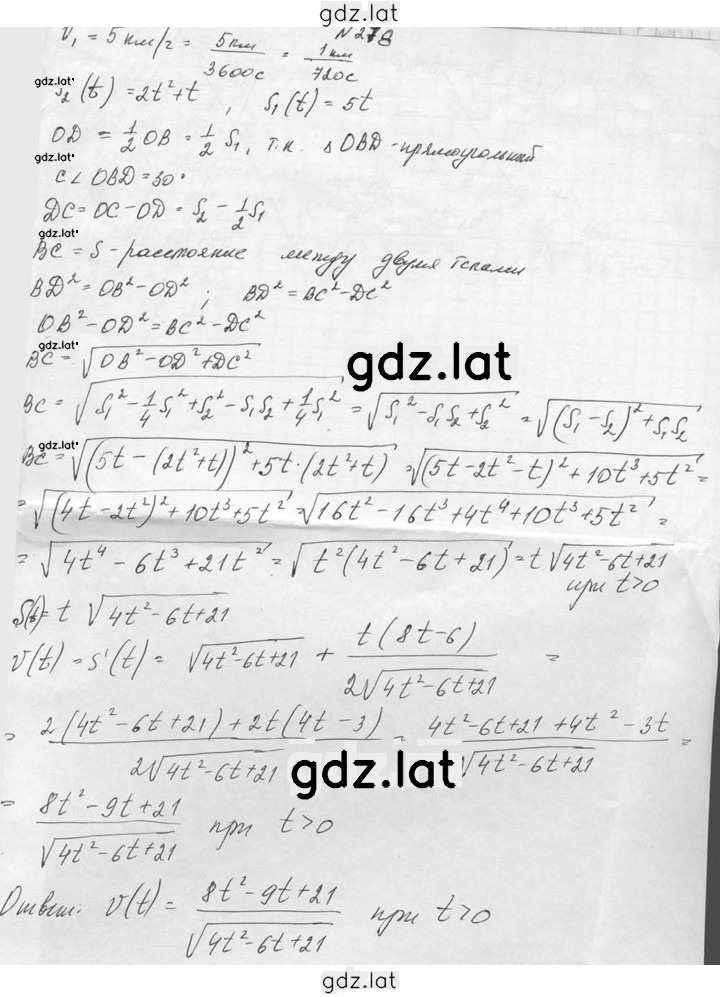 gdz.lat
N 278
V₁ = 5 км/г = 5км/3600с = 1км/720с
gdz.lat
S₂(t) = 2t² + t , S₁(t) = 5t
OD = 1/2 OB = 1/2 S₁, т.к. △OBD - прямоугольный
gdz.lat
с ∠OBD = 30°
DC = OC - OD = S₂ - 1/2 S₁
gdz.lat
BC = S - расстояние между двумя телами
BD² = OB² - OD² ; BD² = BC² - DC²
OB² - OD² = BC² - DC²
gdz.lat
BC = √(OB² - OD² + DC²)
gdz.lat
BC = √(S₁² - 1/4 S₁² + S₂² - S₁S₂ + 1/4 S₁²) = √(S₁² - S₁S₂ + S₂²) = √((S₁ - S₂)² + S₁S₂)
gdz.lat
BC = √((5t - (2t² + t))² + 5t · (2t² + t)) = √((5t - 2t² - t)² + 10t³ + 5t²) =
= √((4t - 2t²)² + 10t³ + 5t²) = √(16t² - 16t³ + 4t⁴ + 10t³ + 5t²) =
= √(4t⁴ - 6t³ + 21t²) = √(t²(4t² - 6t + 21)) = t √(4t² - 6t + 21)
при t > 0
S(t) = t √(4t² - 6t + 21)
v(t) = s'(t) = √(4t² - 6t + 21) + t(8t - 6)/(2√(4t² - 6t + 21)) =
= (2(4t² - 6t + 21) + 2t(4t - 3))/(2√(4t² - 6t + 21)) = (4t² - 6t + 21 + 4t² - 3t)/√(4t² - 6t + 21) =
gdz.lat
= (8t² - 9t + 21)/√(4t² - 6t + 21) при t > 0
Ответ: v(t) = (8t² - 9t + 21)/√(4t² - 6t + 21) при t > 0
gdz.lat